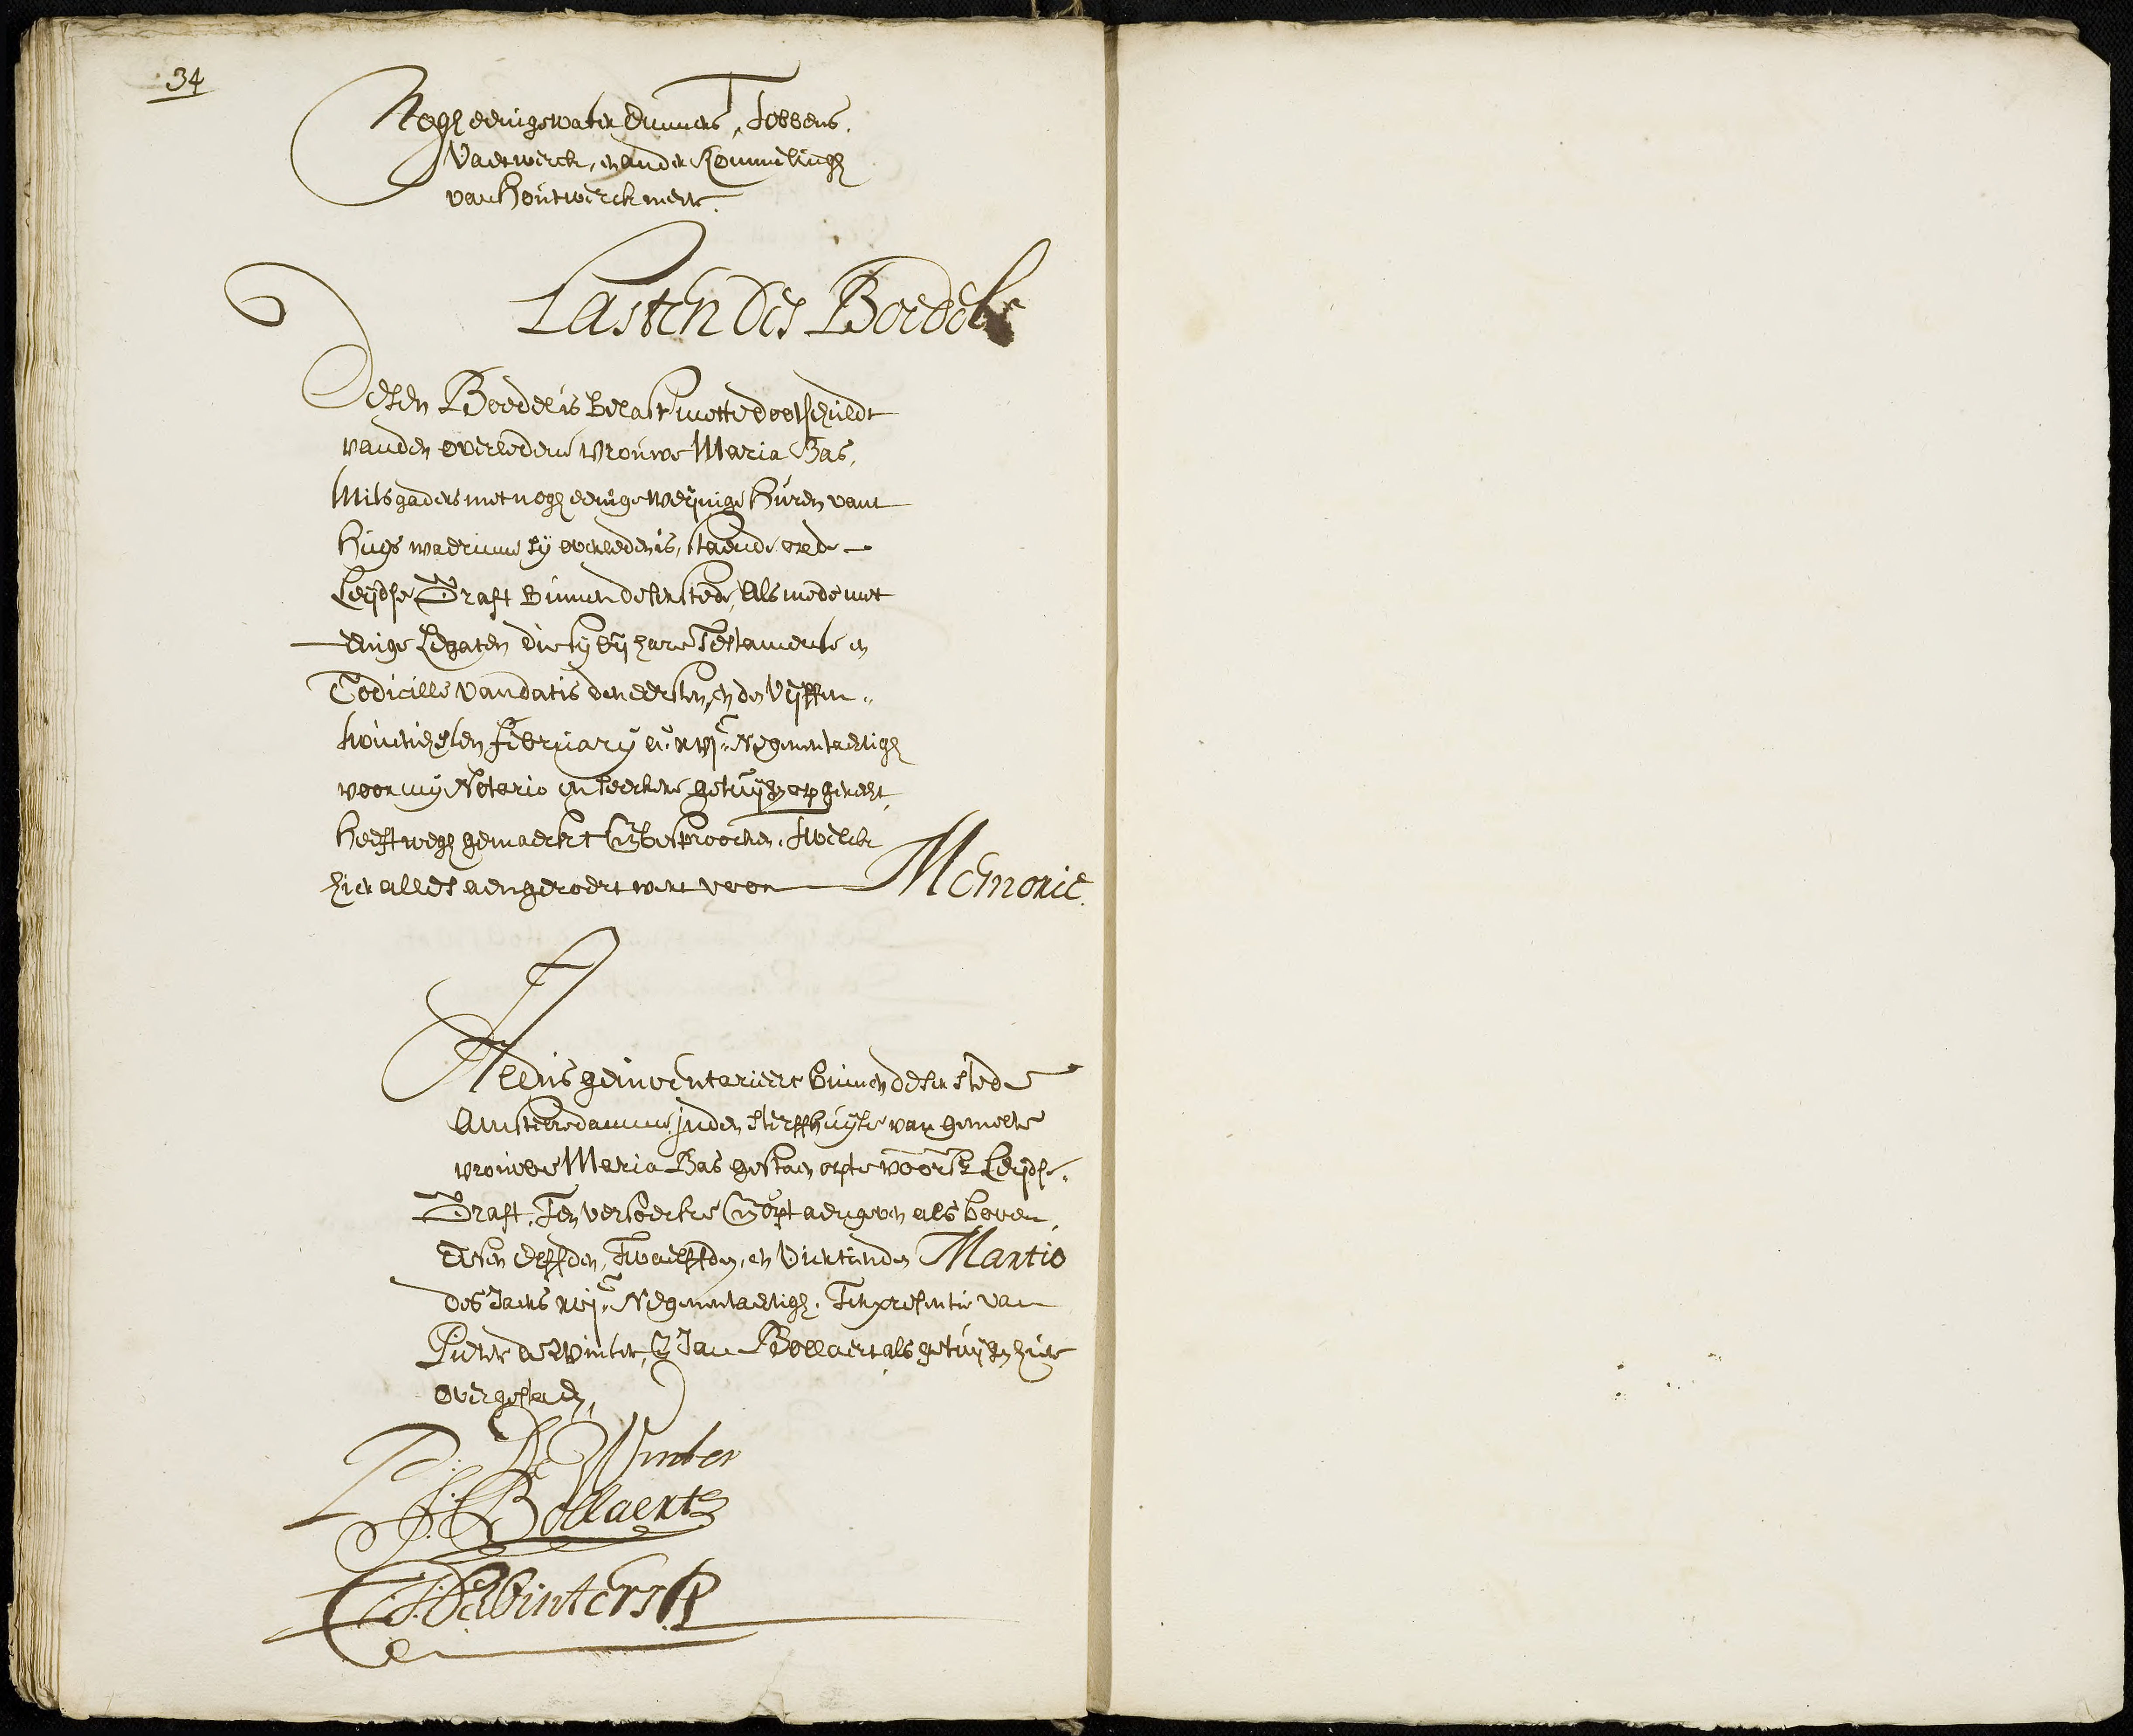 34
Nogh eenige water Emmers, Tobbens,
Vaetwerck, en ander Rommelingh
van Houtwerck mette.
Lasten des Boedels
Desen Boedel is belast mette dootschuldt
vanden overledene vrouwe Maria Bas,
Mitsgaders met nogh eenige weijnige huren vant
huys waerinne sij overleden is, staende op de
Leijdse Graft binnen deser stede, Als mede met
eenige Legaten die sij bij hare Testamente en
Codicille van datis den eersten, en de vijffen-
twintichsten february a.o xvjC Negenentaetigh
voor mij Notario en seeckere getuijgen opgerecht
heeft wegh gemaeckt en besproocken. Twelck
hier alles aengeroert wert voor Memorie.
Aldus geinventarieert binnen deser stede
Amsterdamme, inden sterffhuijse van gemelte
vrouwe Maria Bas gestaen opte voorsz. Leijdse-
Graft, Ten versoecke en opt aengeven als boven,
desen elffden, Twaelffden, en viertienden Martio
des Jaers xvjC Negenentaetigh. Ter presentie van
Pieter de Winter, en Jan Bollaert als getuijgen hier
over gestaen,
P: De Winter
J: Bollaert
J: De Winter N.P.